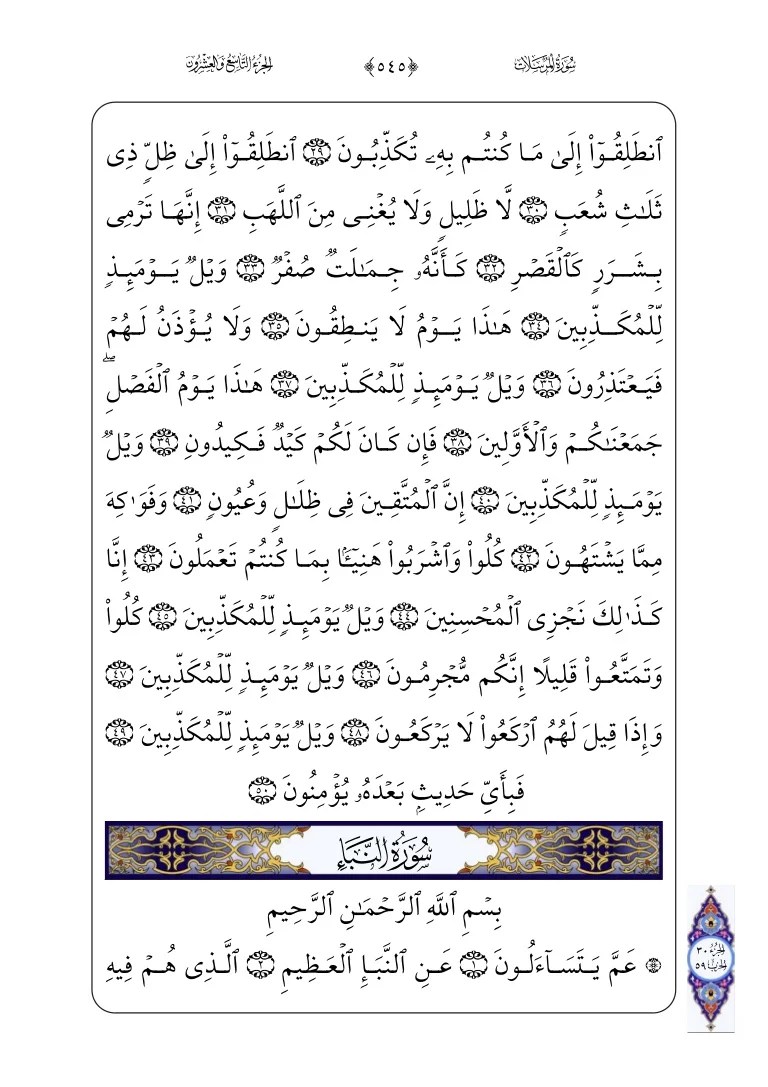 سُورَةُ المُرۡسَلَات
﴿٥٤٥﴾
الجُزءُ التَّاسِعُ وَالعِشۡرُون
ٱنطَلِقُوٓاْ إِلَىٰ مَا كُنتُم بِهِۦ تُكَذِّبُونَ ٢٩ ٱنطَلِقُوٓاْ إِلَىٰ ظِلّٖ ذِي
ثَلَٰثِ شُعَبٖ ٣٠ لَّا ظَلِيلٖ وَلَا يُغۡنِي مِنَ ٱللَّهَبِ ٣١ إِنَّهَا تَرۡمِي
بِشَرَرٖ كَٱلۡقَصۡرِ ٣٢ كَأَنَّهُۥ جِمَٰلَتٞ صُفۡرٞ ٣٣ وَيۡلٞ يَوۡمَئِذٖ
لِّلۡمُكَذِّبِينَ ٣٤ هَٰذَا يَوۡمُ لَا يَنطِقُونَ ٣٥ وَلَا يُؤۡذَنُ لَهُمۡ
فَيَعۡتَذِرُونَ ٣٦ وَيۡلٞ يَوۡمَئِذٖ لِّلۡمُكَذِّبِينَ ٣٧ هَٰذَا يَوۡمُ ٱلۡفَصۡلِۖ
جَمَعۡنَٰكُمۡ وَٱلۡأَوَّلِينَ ٣٨ فَإِن كَانَ لَكُمۡ كَيۡدٞ فَكِيدُونِ ٣٩ وَيۡلٞ
يَوۡمَئِذٖ لِّلۡمُكَذِّبِينَ ٤٠ إِنَّ ٱلۡمُتَّقِينَ فِي ظِلَٰلٖ وَعُيُونٖ ٤١ وَفَوَٰكِهَ
مِمَّا يَشۡتَهُونَ ٤٢ كُلُواْ وَٱشۡرَبُواْ هَنِيٓـَٔۢا بِمَا كُنتُمۡ تَعۡمَلُونَ ٤٣ إِنَّا
كَذَٰلِكَ نَجۡزِي ٱلۡمُحۡسِنِينَ ٤٤ وَيۡلٞ يَوۡمَئِذٖ لِّلۡمُكَذِّبِينَ ٤٥ كُلُواْ
وَتَمَتَّعُواْ قَلِيلًا إِنَّكُم مُّجۡرِمُونَ ٤٦ وَيۡلٞ يَوۡمَئِذٖ لِّلۡمُكَذِّبِينَ ٤٧
وَإِذَا قِيلَ لَهُمُ ٱرۡكَعُواْ لَا يَرۡكَعُونَ ٤٨ وَيۡلٞ يَوۡمَئِذٖ لِّلۡمُكَذِّبِينَ ٤٩
فَبِأَيِّ حَدِيثِۭ بَعۡدَهُۥ يُؤۡمِنُونَ ٥٠
سُورَةُ النَّبَإِ
بِسۡمِ ٱللَّهِ ٱلرَّحۡمَٰنِ ٱلرَّحِيمِ
۞ عَمَّ يَتَسَآءَلُونَ ١ عَنِ ٱلنَّبَإِ ٱلۡعَظِيمِ ٢ ٱلَّذِي هُمۡ فِيهِ
الجُزءُ ٣٠
الحِزبُ ٥٩